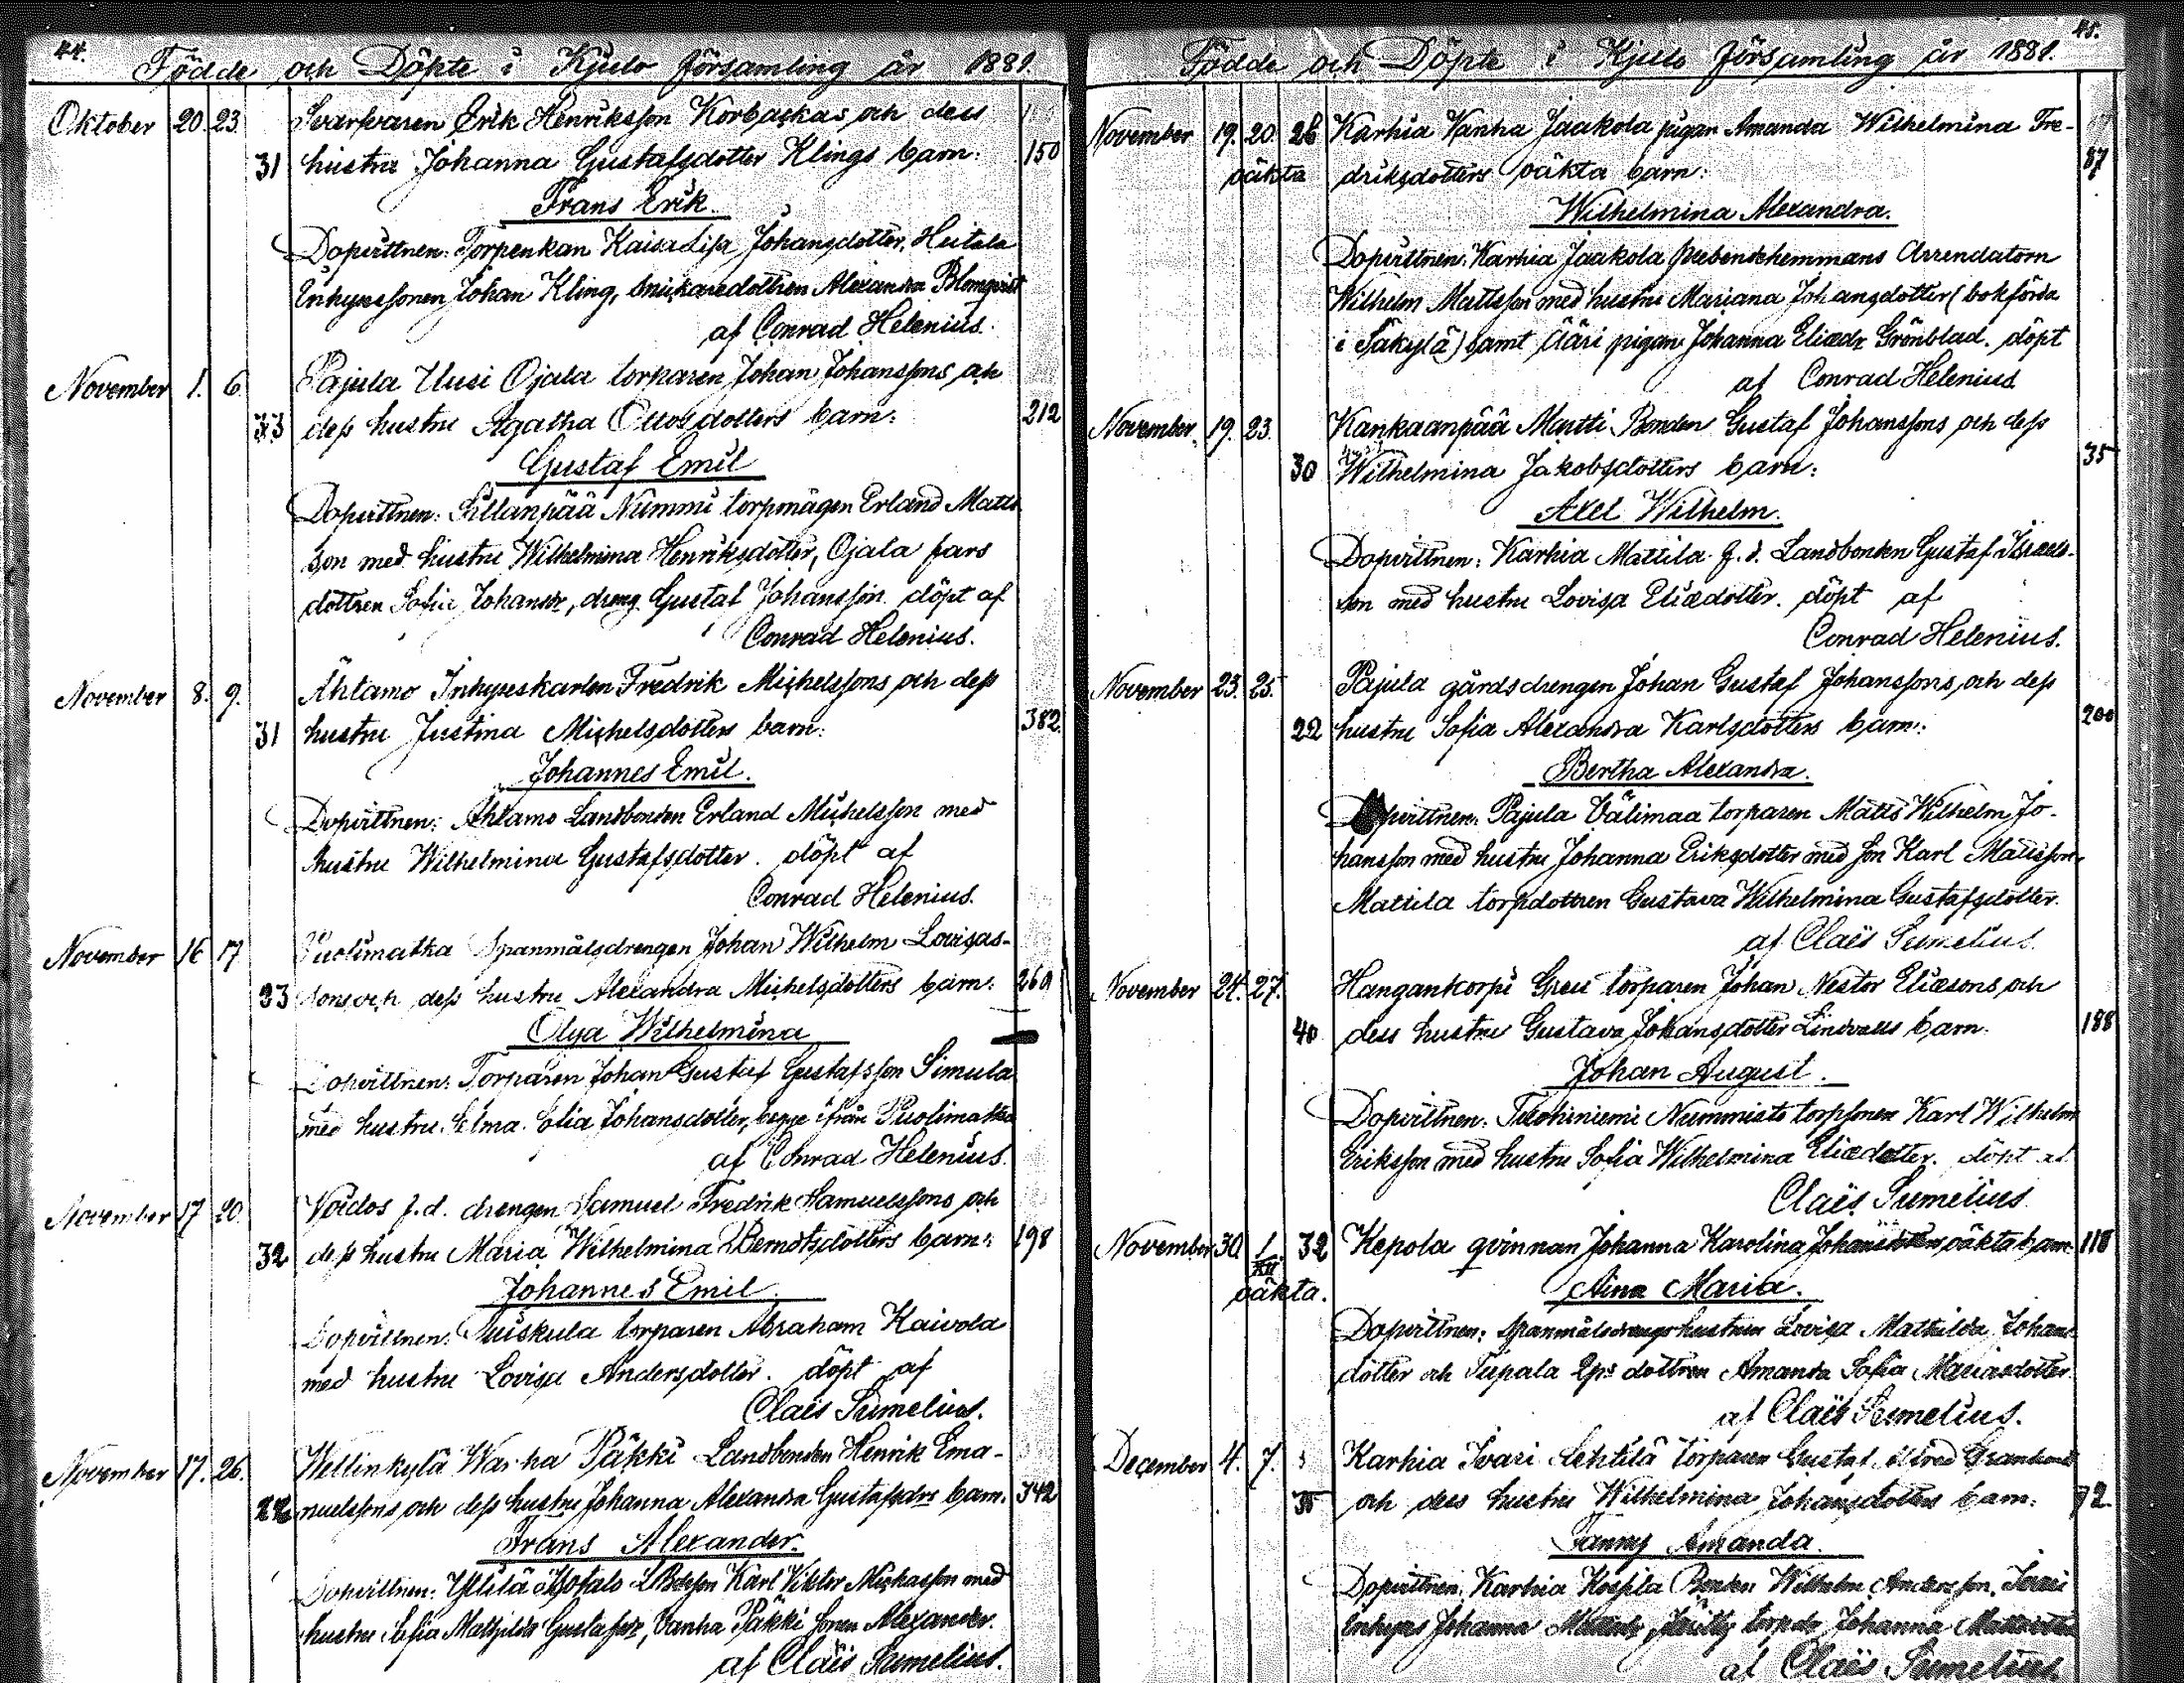 44.
Födde och Döpte i Kjulo församling år 1881.
Oktober 20. 23. Svarfvaren Erik Henriksson Korbackas och dess
31 hustru Johanna Gustafsdotter Klings barn: 150
Frans Erik.
Dopvittnen: Torpenkan Kaisa Lisa Johansdotter, Heitala
Inhysessonen Johan Kling, snickaredottren Alexandra Blomqvist
af Conrad Helenius.
November 1. 6. Pajula Uusi Ojala torparen Johan Johanssons och
33 dess hustru Agatha Ottosdotters barn: 212
Gustaf Emil
Dopvittnen: Sillanpää Nummi torpmågen Erland Matts
son med hustru Wilhelmina Henriksdotter, Ojala fars
dottren Sofia Johansdr, dreng Gustaf Johansson. döpt af
Conrad Helenius.
November 8. 9. Ähtamo Inhyseskarlen Fredrik Michelssons och dess
31 hustru Justina Michelsdotters barn: 382
Johannes Emil.
Dopvittnen: Ähtamo Landbonden Erland Michelsson med
hustru Wilhelmina Gustafsdotter. döpt af
Conrad Helenius.
November 16 17 Puolimatka Spanmålsdrengen Johan Wilhelm Lovisas-
23 sons och dess hustru Alexandra Michelsdotters barn: 260
Olga Wilhelmina
Dopvittnen: Torparen Johan Gustaf Gustafsson Simula
med hustru Selma Elia Johansdotter, begge ifrån Puolimatka
af Conrad Helenius.
November 17 20. Voidos f.d. drengen Samuel Fredrik Samuelssons och
32 dess hustru Maria Wilhelmina Berndtsdotters barn: 198
Johannes Emil.
Dopvittnen: Tuiskula torparen Abraham Kaivola
med hustru Lovisa Andersdotter. döpt af
Claës Sumelius.
November 17. 26. Wellinkylä Wanha Päkki Landbonden Henrik Ema-
22 nuelssons och dess hustru Johanna Alexandra Gustafsdrs barn. 342
Frans Alexander.
Dopvittnen: Karl Viktor Mickasson med
hustru Sofia Mathilda Gustafsdr, Vanha Päkki sonen Alexander.
af Claës Sumelius.
45.
Födde och Döpte i Kjulo församling år 1881.
November 19. 20. 26 Karhia Vanha Jaakola pigan Amanda Wilhelmina Fre-
oäkta driksdotters oäkta barn: 87
Wilhelmina Alexandra.
Dopvittnen: Karhia Jaakola prebendehemmans Arrendatorn
Wilhelm Mattsson med hustru Mariana Johansdotter (bokförda
i Säkylä) samt Ääri pigan Johanna Eliædr Grönblad. döpt
af Conrad Helenius
November 19. 23. Kankaanpää Martti Bonden Gustaf Johanssons och dess
30 Wilhelmina Jakobsdotters barn: 35
Axel Wilhelm.
Dopvittnen: Karhia Mattila f.d. Landbonden Gustaf Israels-
son med hustru Lovisa Eliædotter. döpt af
Conrad Helenius.
November 23. 25. Pajula gårdsdrengen Johan Gustaf Johanssons och dess
22 hustru Sofia Alexandra Karlsdotters barn: 200
Bertha Alexandra.
Dopvittnen: Pajula Välimaa torparen Matts Wilhelm Jo-
hansson med hustru Johanna Eriksdotter med son Karl Mattsson,
Mattila torpdottren Gustava Wilhelmina Gustafsdotter.
af Claës Sumelius.
November 24. 27. Hangankorpi Greis torparen Johan Nestor Eliæsons och
40 dess hustru Gustava Johansdotter Lindvalls barn: 188
Johan August.
Dopvittnen: Tuohiniemi Nummisto torpsonen Karl Wilhelm
Eriksson med hustru Sofia Wilhelmina Eliædotter. döpt af
Claës Sumelius.
November 30. 1/XII 32 Kepola qvinnan Johanna Karolina oäkta barn: 118
oäkta. Aina Maria.
Dopvittnen: Spanmålsdrengshustrun Lovisa Mathilda Johans
dotter och Tupala dottren Amanda Sofia Mariasdotter
af Claës Sumelius.
December 4. 7. Karhia Ivari Lehtilä torparen Gustaf Alfred Granlund
35 och dess hustru Wilhelmina Johansdotters barn: 72.
Fanny Amanda.
Dopvittnen: Karhia Koskila Bonden Wilhelm Andersson, Ivari
Inhyses Johanna torpdr Johanna
af Claës Sumelius.